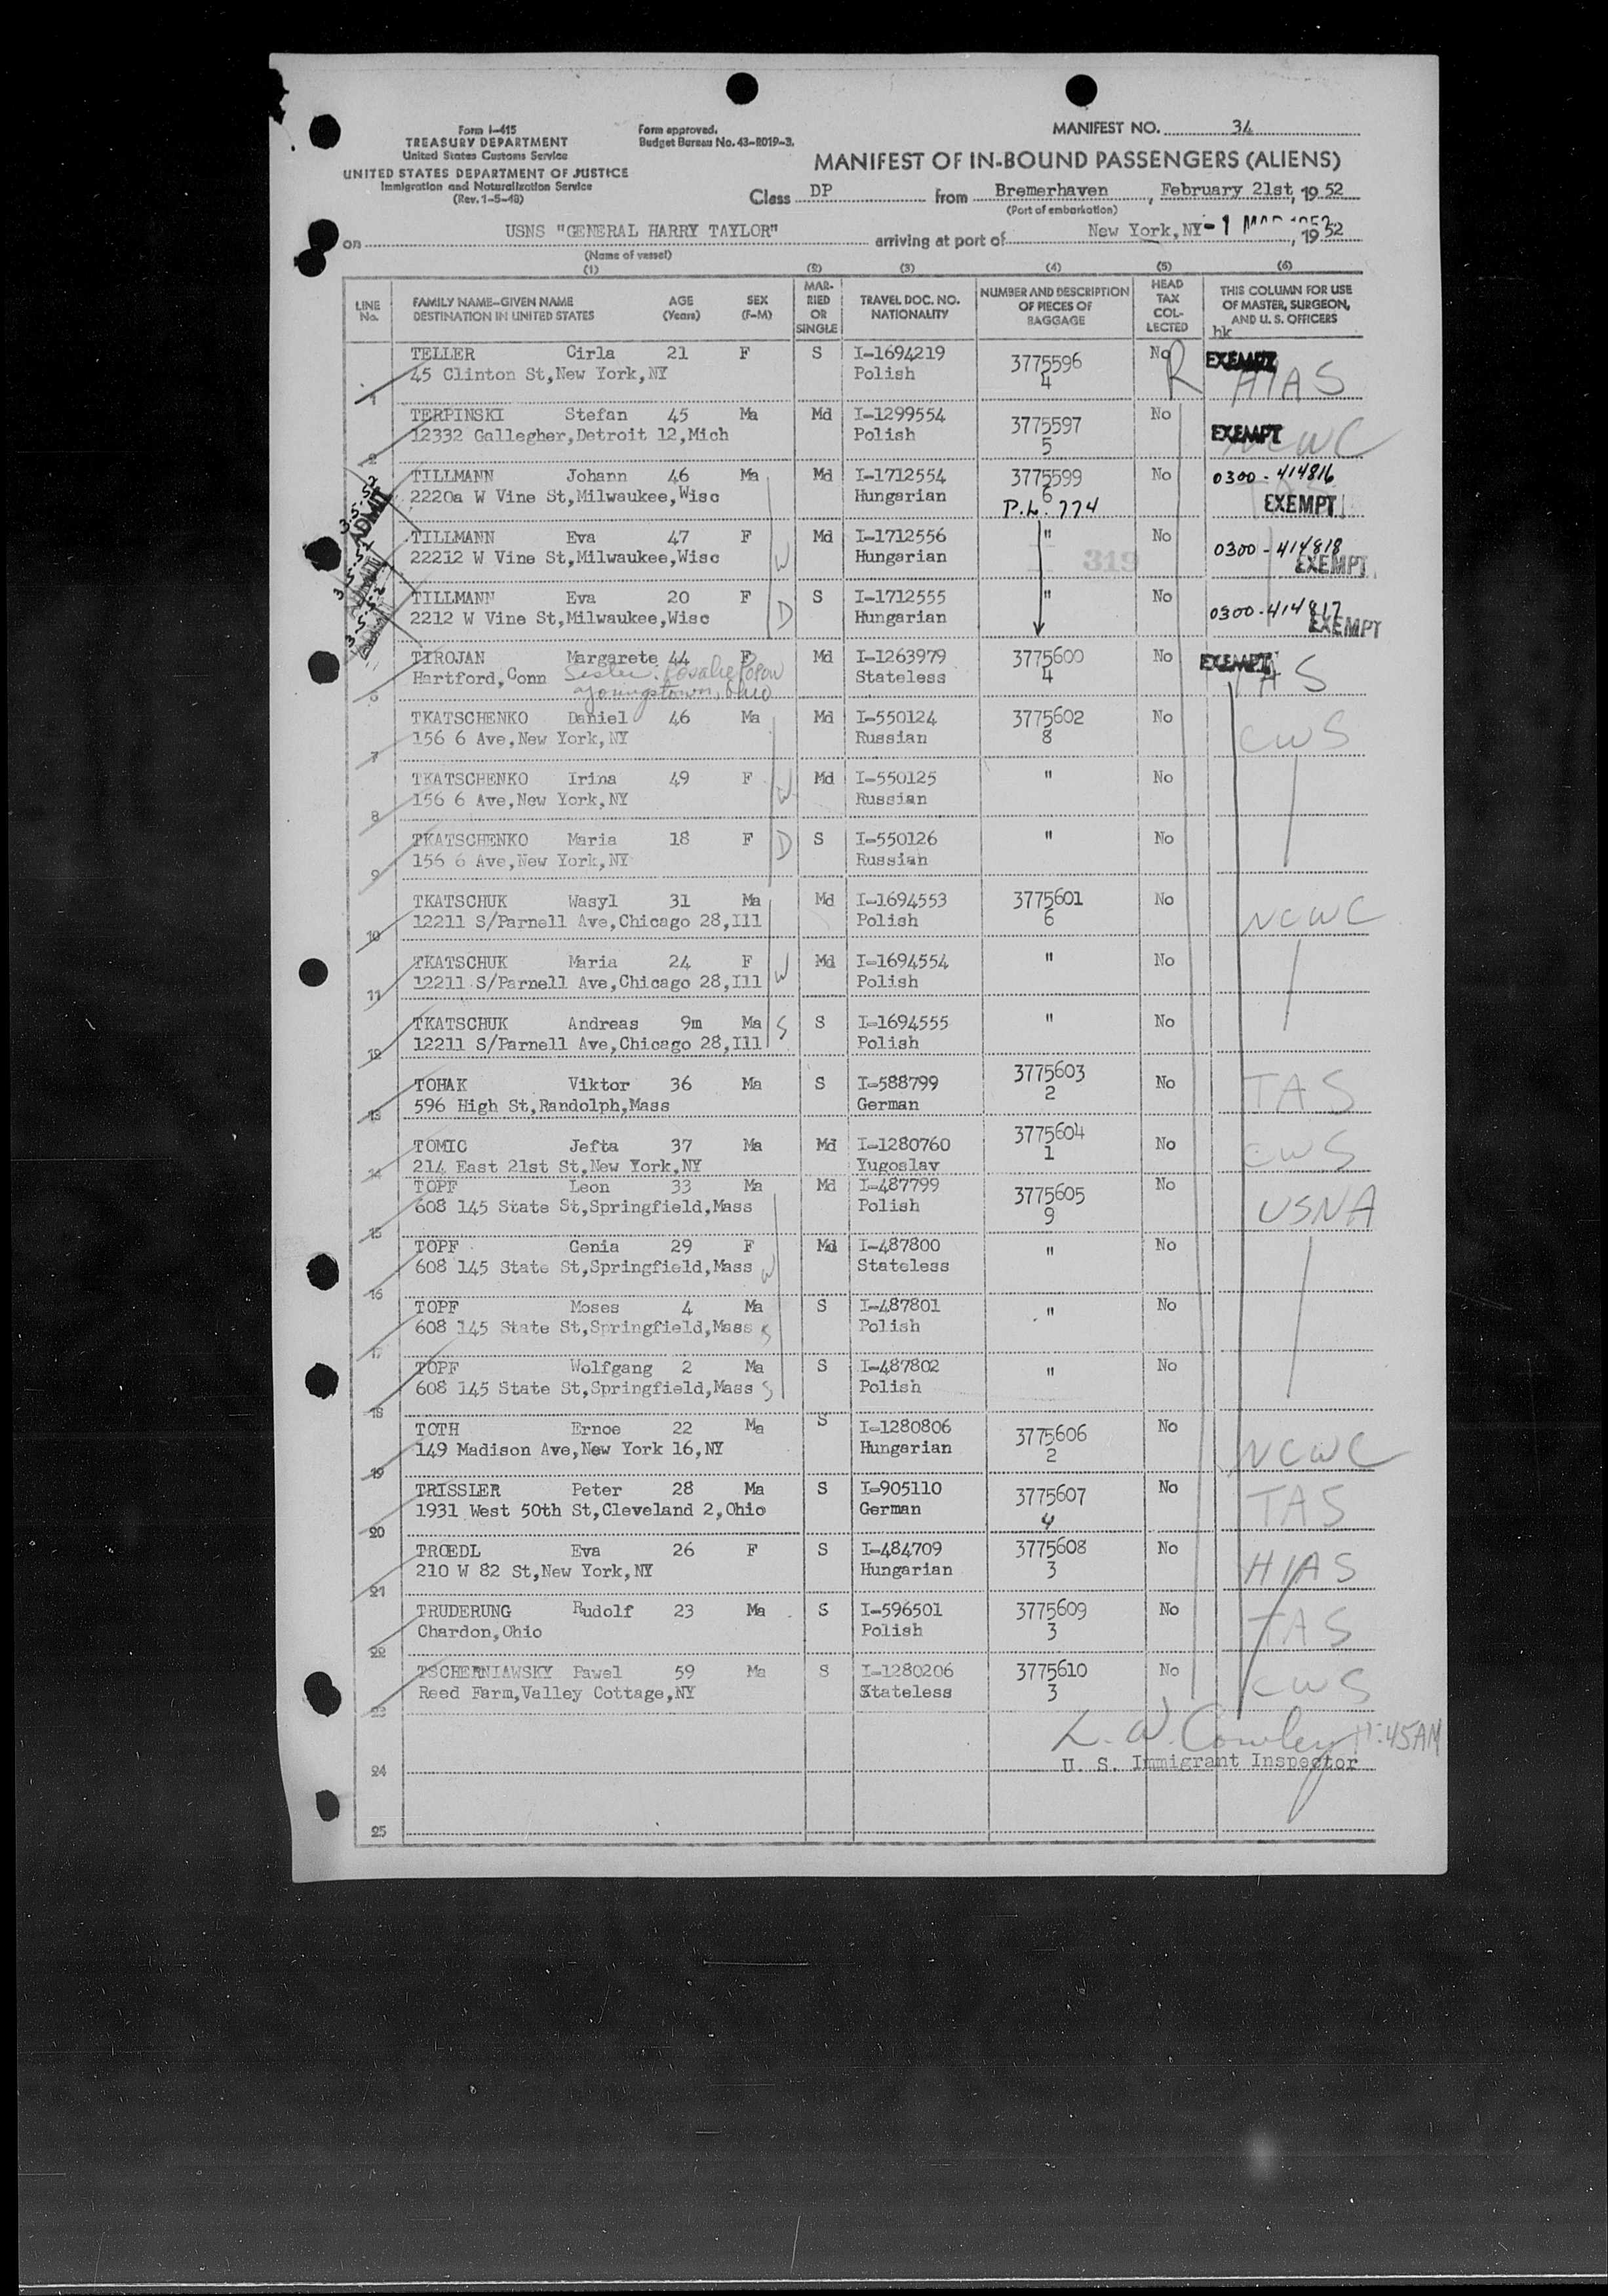 Form I-415
TREASURY DEPARTMENT
United States Customs Service
UNITED STATES DEPARTMENT OF JUSTICE
Immigration and Naturalization Service
(Rev. 1-5-48)
Form approved.
Budget Bureau No. 43-R019-3.
MANIFEST NO. 34
MANIFEST OF IN-BOUND PASSENGERS (ALIENS)
Class DP from Bremerhaven, February 21st, 19 52
(Port of embarkation)
on USNS "GENERAL HARRY TAYLOR" arriving at port of New York, NY -1 MAR 1952, 19 52
(Name of vessel)
(1) (2) (3) (4) (5) (6)
LINE No. FAMILY NAME-GIVEN NAME DESTINATION IN UNITED STATES AGE (Years) SEX (F-M) MARRIED OR SINGLE TRAVEL DOC. NO. NATIONALITY NUMBER AND DESCRIPTION OF PIECES OF BAGGAGE HEAD TAX COLLECTED THIS COLUMN FOR USE OF MASTER, SURGEON, AND U. S. OFFICERS
hk
1 TELLER Cirla 21 F S I-1694219 3775596 No R EXEMPT
45 Clinton St,New York,NY Polish 4 HIAS
2 TERPINSKI Stefan 45 Ma Md I-1299554 3775597 No
12332 Gallegher,Detroit 12,Mich Polish 5 EXEMPT NCWC
3-5-52 ADMIT TILLMANN Johann 46 Ma Md I-1712554 3775599 No 0300-414816
2220a W Vine St,Milwaukee,Wisc Hungarian 6 TAS EXEMPT
P.L. 774
TILLMANN Eva 47 F Md I-1712556 " No 0300-414818
22212 W Vine St,Milwaukee,Wisc W Hungarian 319 EXEMPT
TILLMANN Eva 20 F S I-1712555 " No 0300-414817
2212 W Vine St,Milwaukee,Wisc D Hungarian EXEMPT
6 TIROJAN Margarete 44 F Md I-1263979 3775600 No EXEMPT
Hartford,Conn Sister: Rosalie Popow Stateless 4 TAS
Youngstown, Ohio
7 TKATSCHENKO Daniel 46 Ma Md I-550124 3775602 No
156 6 Ave,New York,NY Russian 8 CWS
8 TKATSCHENKO Irina 49 F W Md I-550125 " No
156 6 Ave,New York,NY Russian
9 TKATSCHENKO Maria 18 F D S I-550126 " No
156 6 Ave,New York,NY Russian
10 TKATSCHUK Wasyl 31 Ma Md I-1694553 3775601 No
12211 S/Parnell Ave,Chicago 28,Ill Polish 6 NCWC
11 TKATSCHUK Maria 24 F W Md I-1694554 " No
12211 S/Parnell Ave,Chicago 28,Ill Polish
12 TKATSCHUK Andreas 9m Ma S S I-1694555 " No
12211 S/Parnell Ave,Chicago 28,Ill Polish
13 TOHAK Viktor 36 Ma S I-588799 3775603 No TAS
596 High St,Randolph,Mass German 2
14 TOMIC Jefta 37 Ma Md I-1280760 3775604 No CWS
214 East 21st St,New York,NY Yugoslav 1
15 TOPF Leon 33 Ma Md I-487799 3775605 No
608 145 State St,Springfield,Mass Polish 9 USNA
16 TOPF Genia 29 F Md I-487800 " No
608 145 State St,Springfield,Mass W Stateless
17 TOPF Moses 4 Ma S I-487801 " No
608 145 State St,Springfield,Mass S Polish
18 TOPF Wolfgang 2 Ma S I-487802 " No
608 145 State St,Springfield,Mass S Polish
19 TOTH Ernoe 22 Ma S I-1280806 3775606 No
149 Madison Ave,New York 16,NY Hungarian 2 NCWC
20 TRISSLER Peter 28 Ma S I-905110 3775607 No
1931 West 50th St,Cleveland 2,Ohio German 4 TAS
21 TROEDL Eva 26 F S I-484709 3775608 No
210 W 82 St,New York,NY Hungarian 3 HIAS
22 TRUDERUNG Rudolf 23 Ma S I-596501 3775609 No
Chardon,Ohio Polish 3 TAS
23 TSCHERNIAWSKY Pawel 59 Ma S I-1280206 3775610 No
Reed Farm,Valley Cottage,NY Stateless 3 CWS
L. W. Cowley 11:45AM
U. S. Immigrant Inspector
24
25